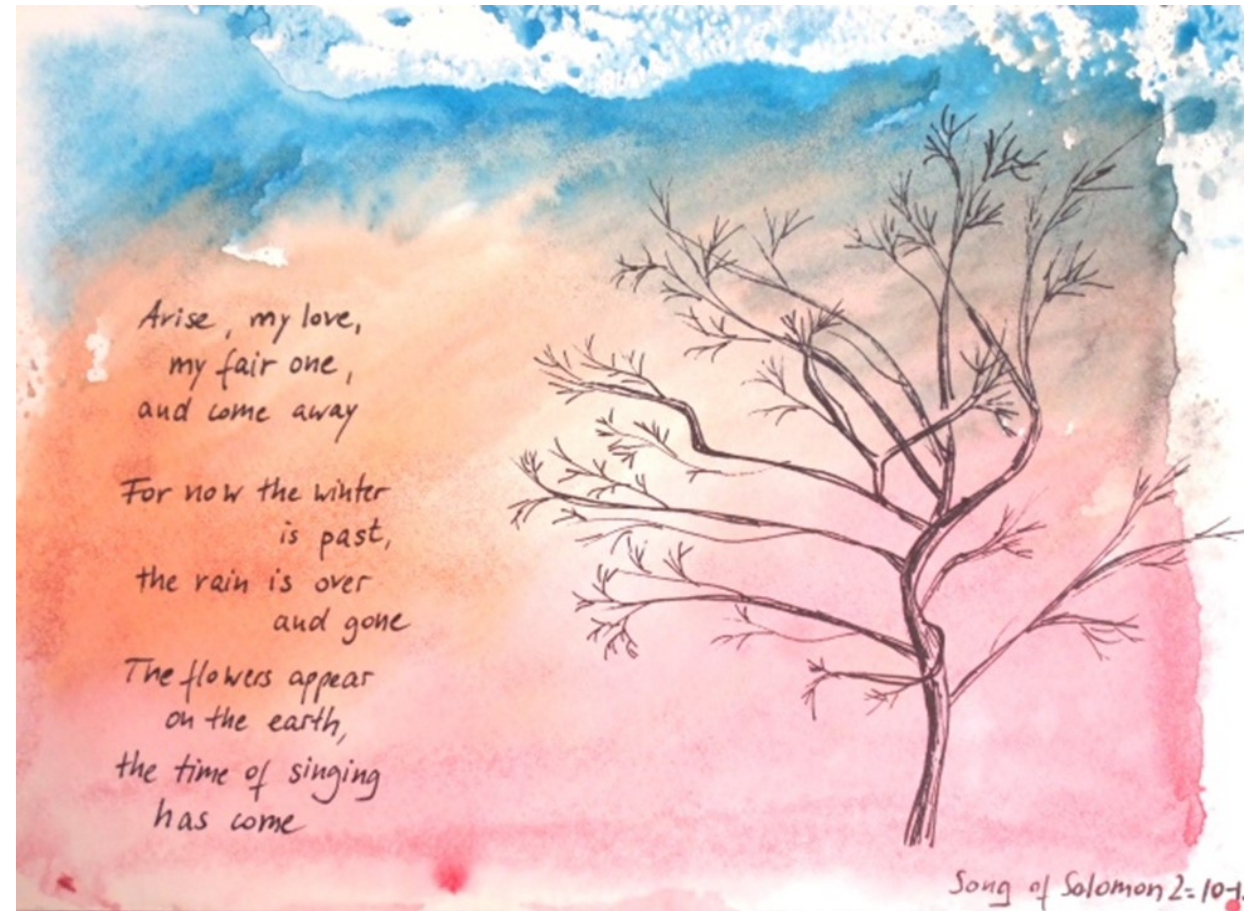 Arise, my love,
my fair one,
and come away
For now the winter
is past,
the rain is over
and gone
The flowers appear
on the earth,
the time of singing
has come
Song of Solomon 2:10-1